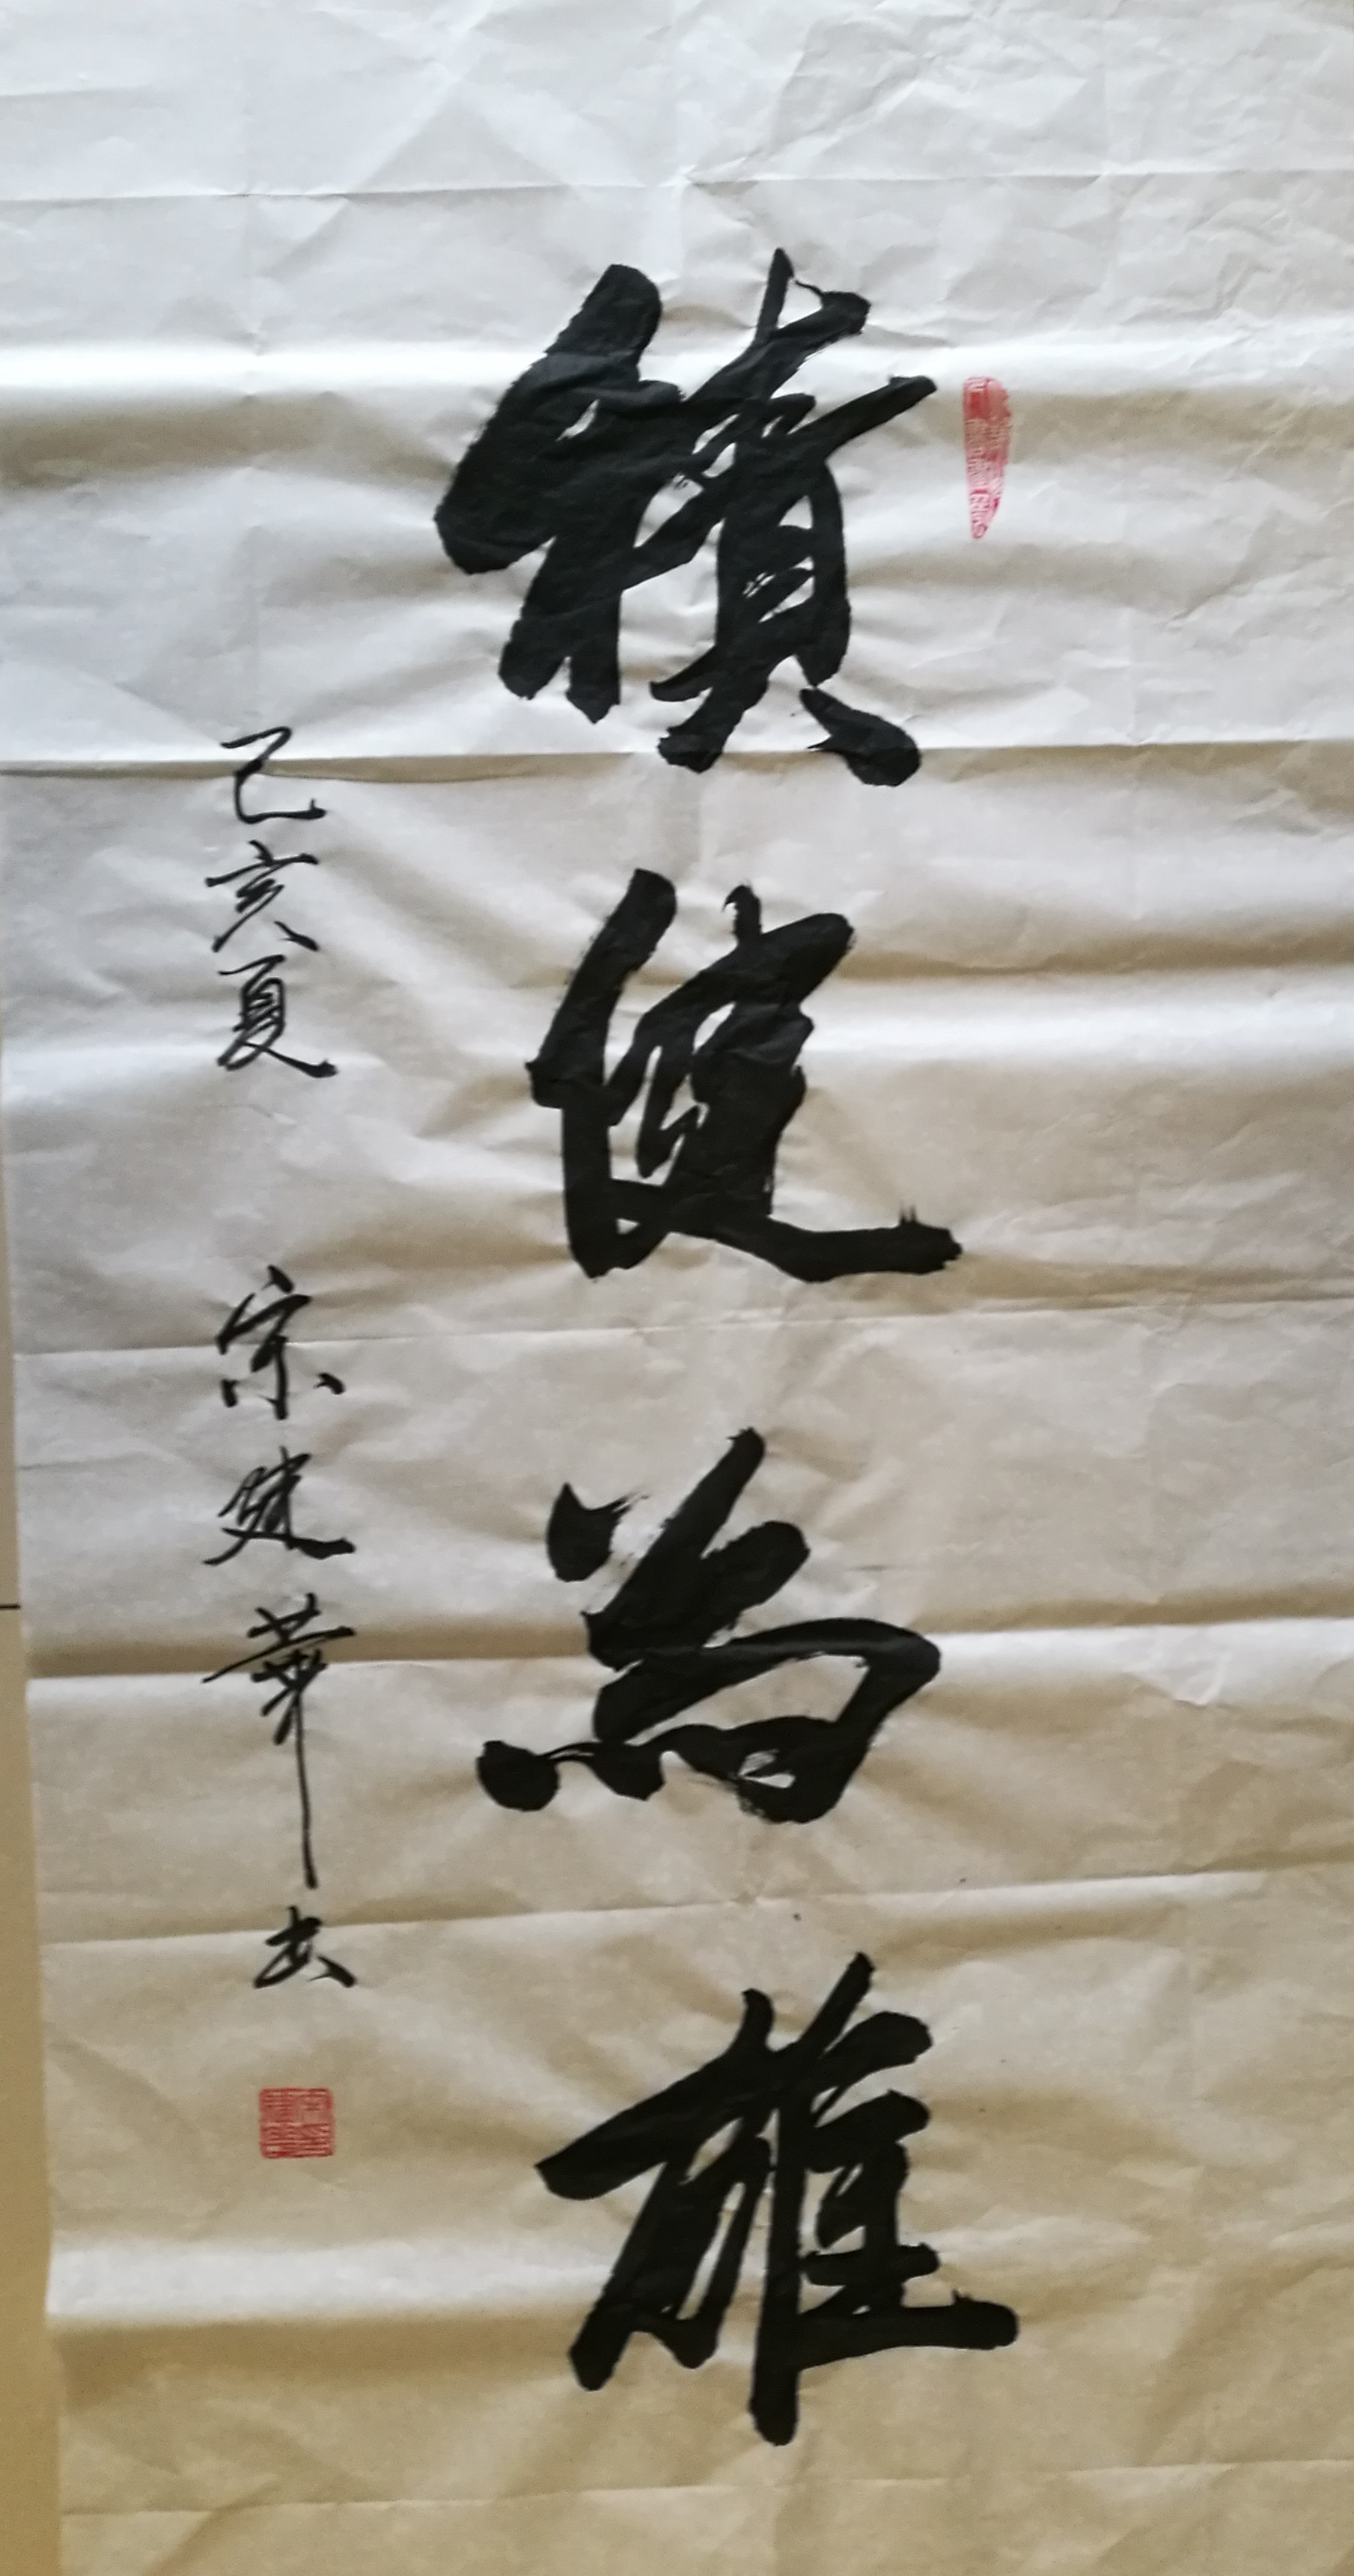 積健為雄
己亥夏 宗建華書